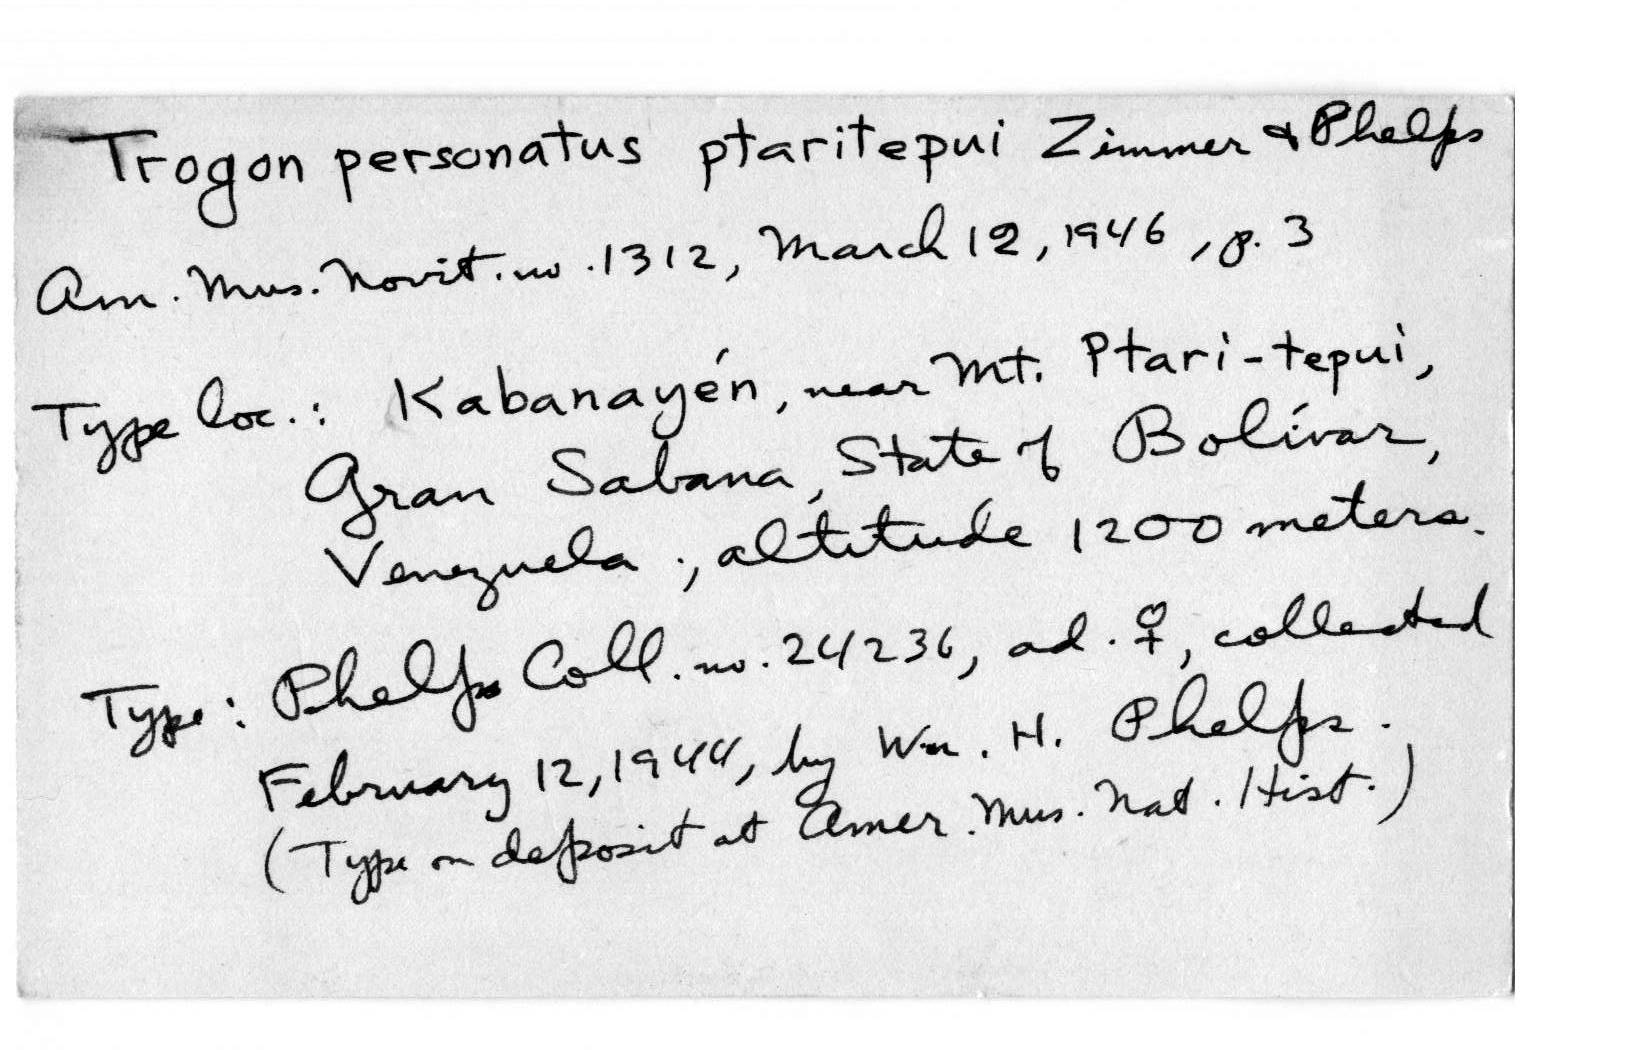 Trogon personatus ptaritepui Zimmer & Phelps
Am. Mus. Novit. no. 1312, March 12, 1946, p. 3
Type loc.: Kabanayén, near Mt. Ptari-tepui,
Gran Sabana, State of Bolívar,
Venezuela; altitude 1200 meters.
Type: Phelps Coll. no. 24236, ad. ♀, collected
February 12, 1944, by Wm. H. Phelps.
(Type on deposit at Amer. Mus. Nat. Hist.)